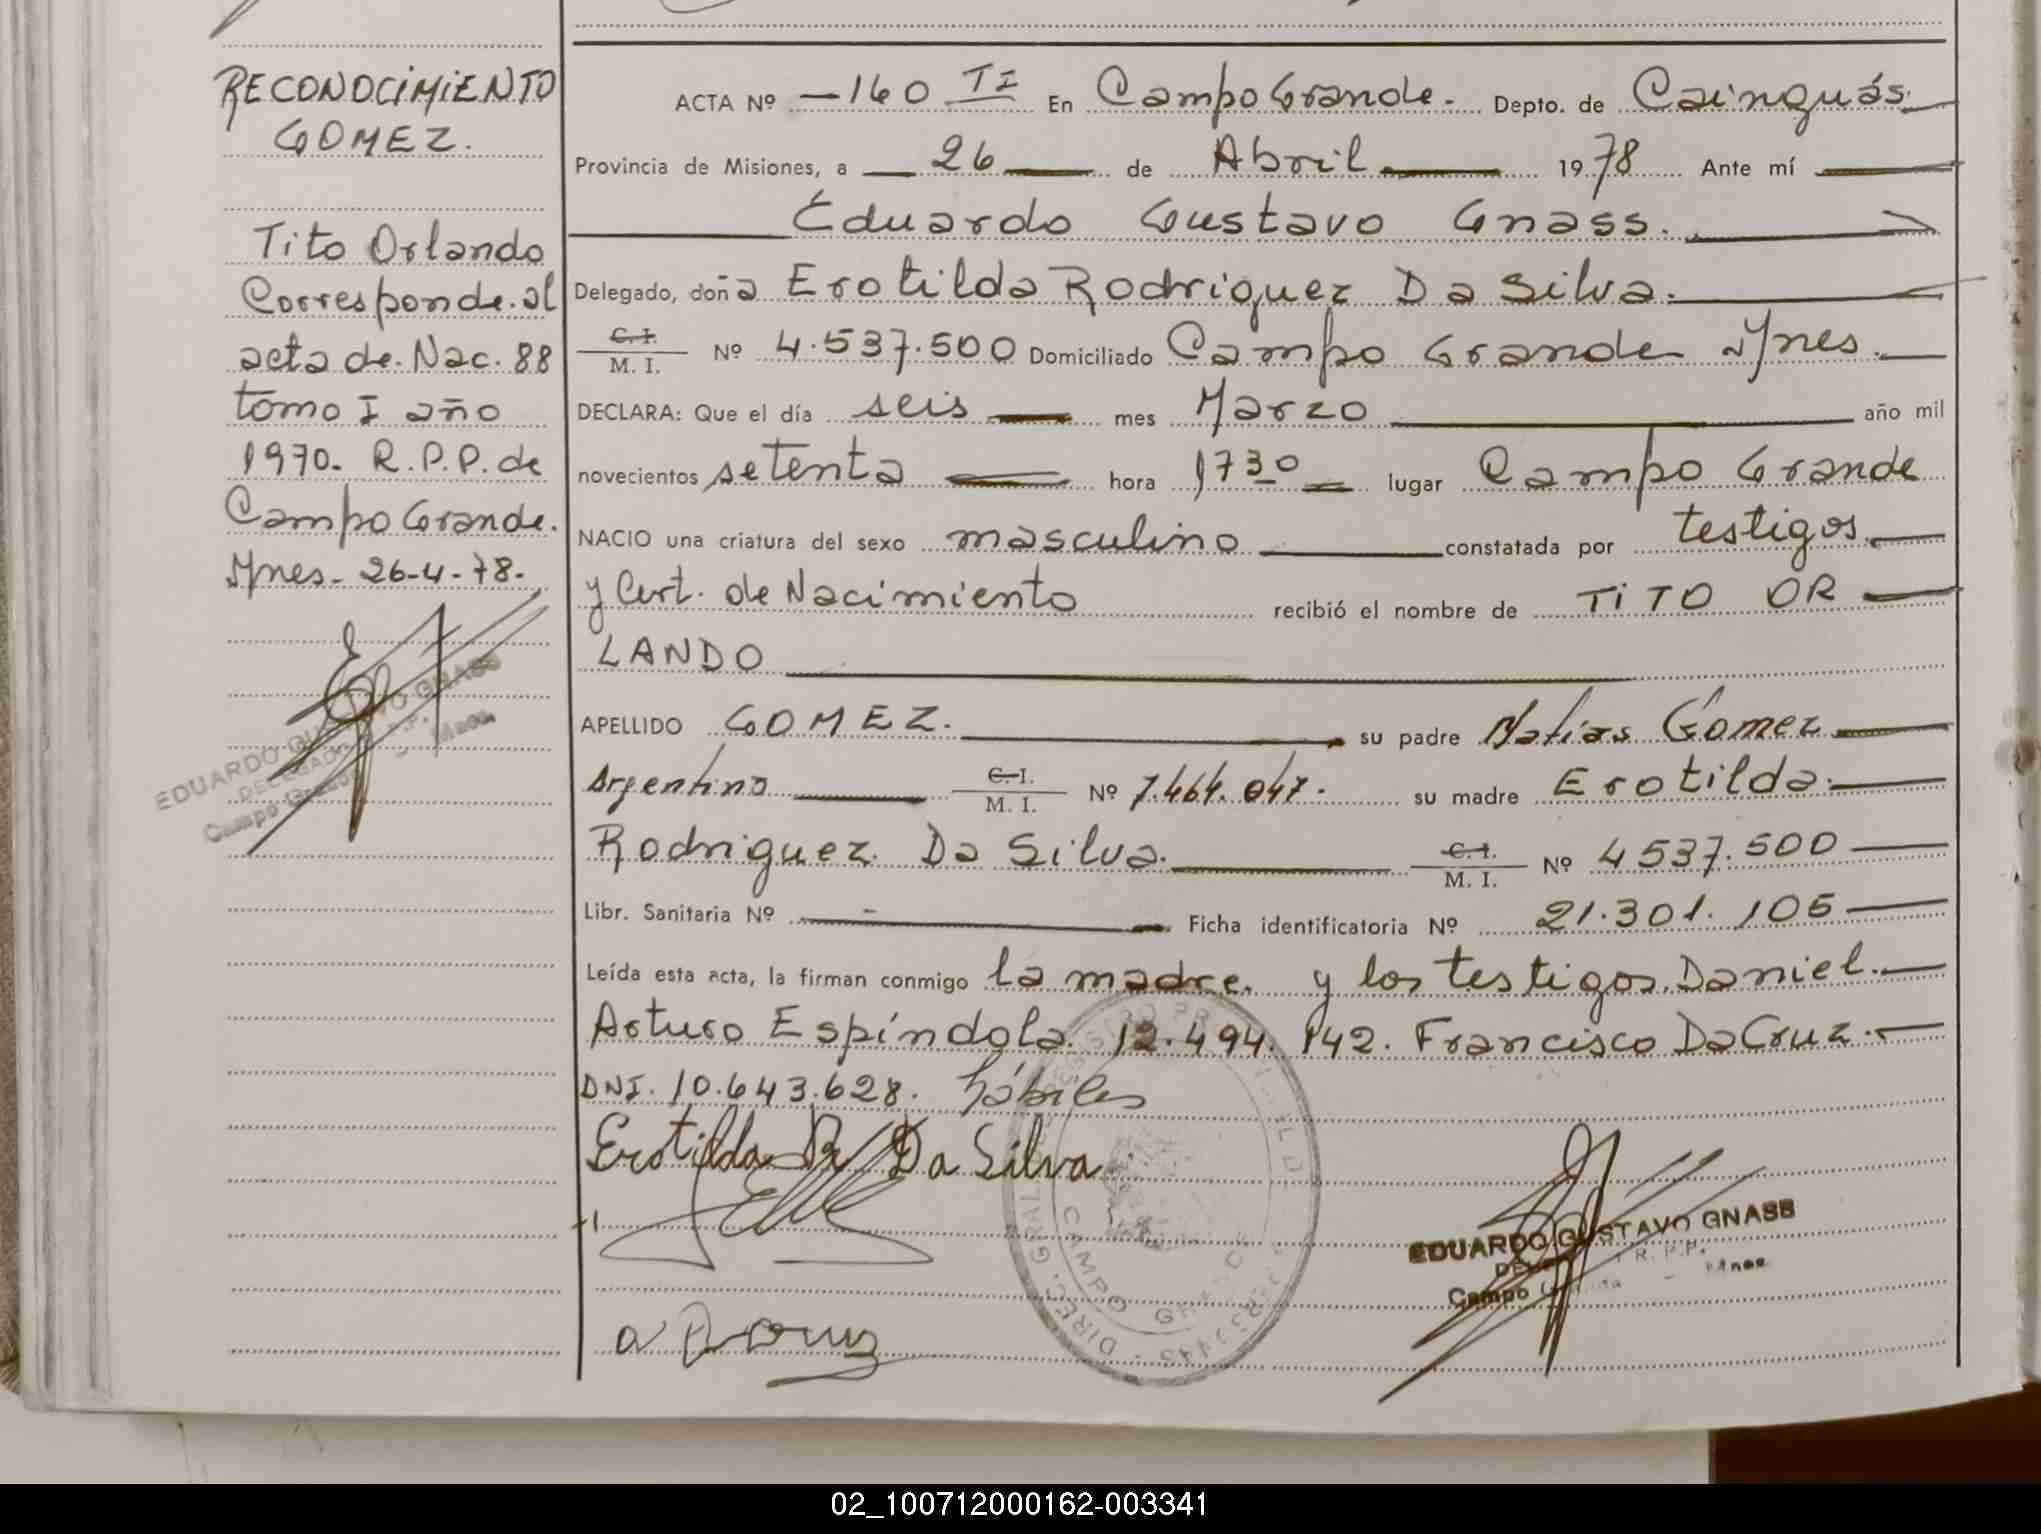 RECONOCIMIENTO
GOMEZ.
Tito Orlando
Corresponde al
acta de Nac. 88
tomo I año
1970. R.P.P. de
Campo Grande.
Mnes. 26-4-78.
EDUARDO GUSTAVO GNASS
DELEGADO R.P.P.
Campo Grande - Mnes.
ACTA Nº 160 TI En Campo Grande. Depto. de Cainguás
Provincia de Misiones, a 26 de Abril 1978 Ante mí
Eduardo Gustavo Gnass.
Delegado, doña Erotilda Rodriguez Da Silva.
C.I. / M. I. Nº 4.537.500 Domiciliado Campo Grande Mnes.
DECLARA: Que el día seis mes Marzo año mil
novecientos setenta hora 1730 lugar Campo Grande
NACIO una criatura del sexo masculino constatada por testigos.
y Cert. de Nacimiento recibió el nombre de TITO OR
LANDO
APELLIDO GOMEZ. su padre Matias Gomez
Argentino C.I. / M. I. Nº 7.464.047. su madre Erotilda
Rodriguez Da Silva. C.I. / M. I. Nº 4537.500
Libr. Sanitaria Nº - Ficha identificatoria Nº 21.301.105
Leída esta acta, la firman conmigo la madre. y los testigos Daniel.
Arturo Espíndola. 12.494.142. Francisco Da Cruz.
DNI. 10.643.628. hábiles
Erotilda R Da Silva
EDUARDO GUSTAVO GNASS
R.P.P.
Campo - Mnes
CAMPO GRANDE
02_100712000162-003341